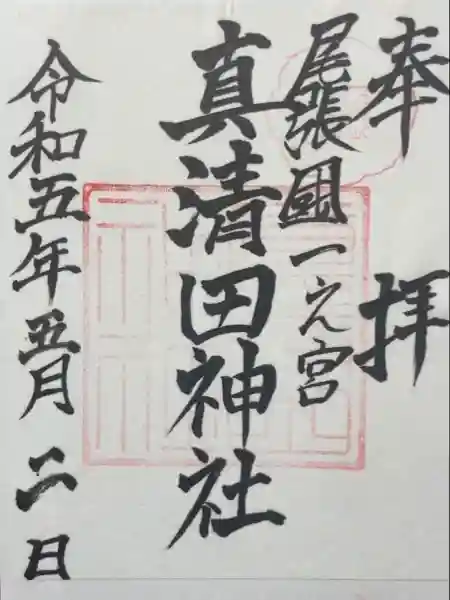 奉拝
尾張國一之宮
真清田神社
令和五年五月二日